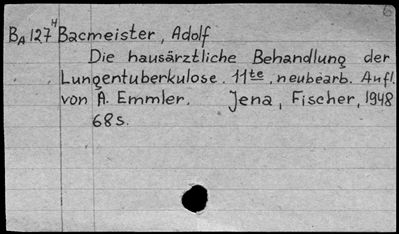 6
BA 127 H Bacmeister, Adolf
Die hausärztliche Behandlung der
Lungentuberkulose. 11te, neubearb. Aufl.
von A. Emmler. Jena, Fischer, 1948
68 s.